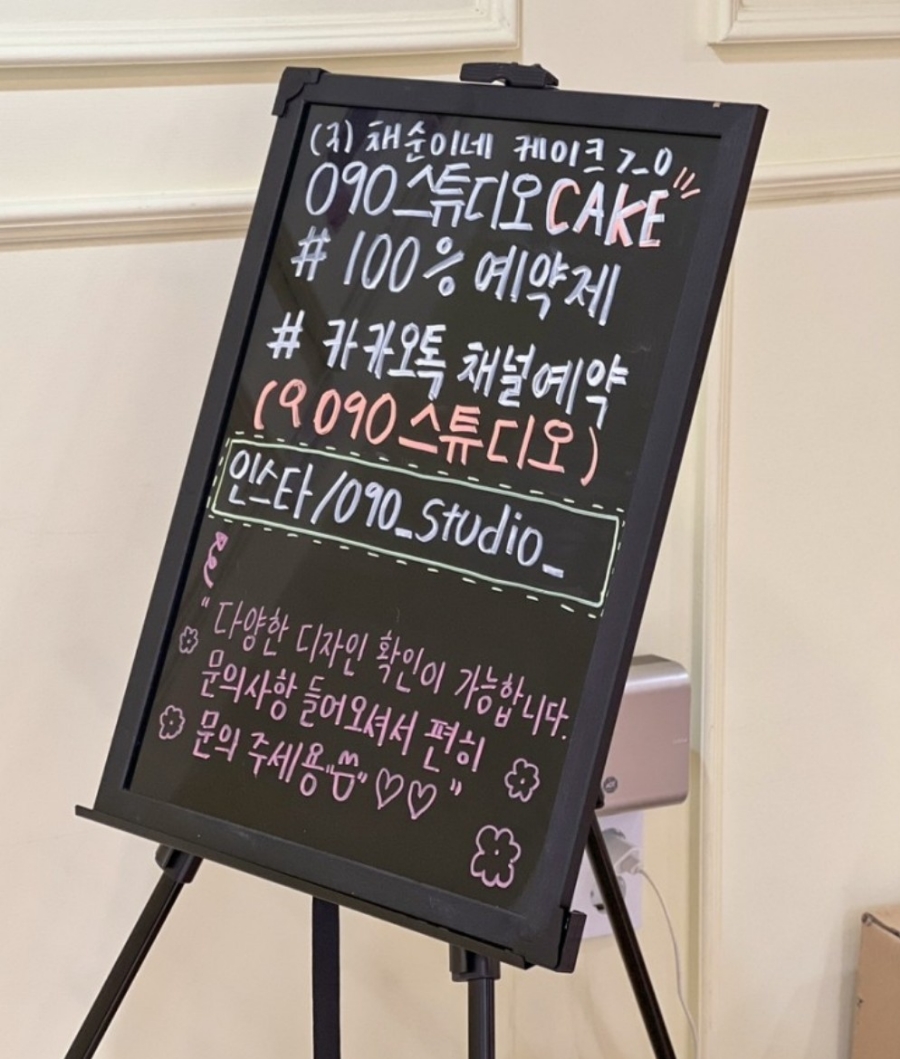 (구) 채순이네 케이크 7_0
090스튜디오 CAKE
# 100% 예약제
# 카카오톡 채널예약
(090스튜디오)
인스타/090_studio_
"다양한 디자인 확인이 가능합니다.
문의사항 들어오셔서 편히
문의 주세용 ♡♡"